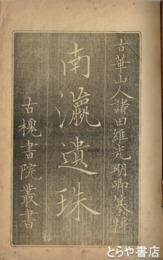 古華山人諸田維光明卿纂輯
南瀛遺珠
古槐書院叢書
とらや書房